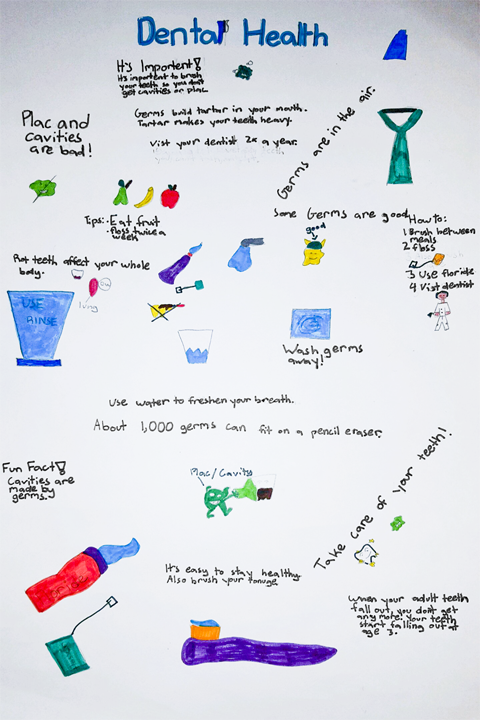 Dental Health
It's Important!
Its inportent to brush
your teeth so you don't
get cavities or plac.
Germs build tartar in your mouth.
Tartar makes your teeth heavy.
Vist your dentist 2x a year.
Germs are in the air.
Plac and
cavities
are bad!
Tips: • Eat fruit
• floss twice a
week
Some Germs are good
good
How to:
1 Brush between
meals
2 floss
3 Use floride
4 Vist dentist
Rot teeth affect your whole
body.
USE
RINSE
Wash germs
away!
Use water to freshen your breath.
About 1,000 germs can fit on a pencil eraser.
Fun Fact!
Cavities are
made by
germs.
Plac/Cavitys
Take care of your teeth!
It's easy to stay healthy.
Also brush your tonuge
When your adult teeth
fall out, you don't get
any more! your teeth
start falling out at
age 3.